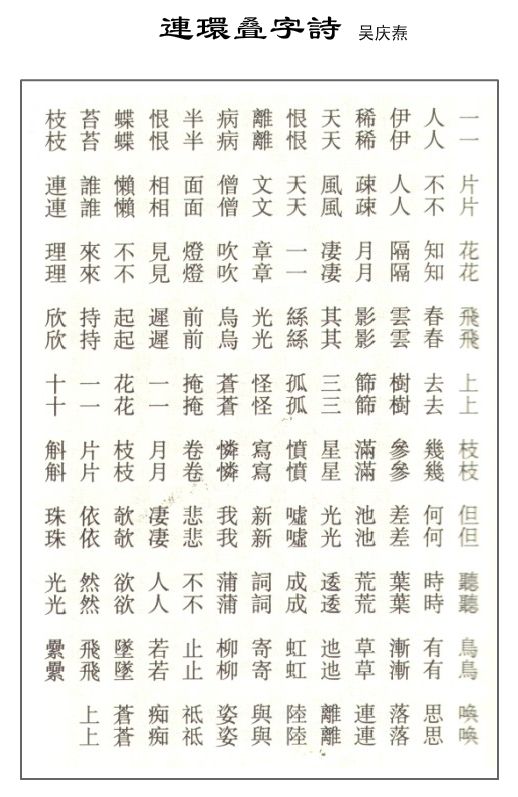 連環叠字詩 吴庆焘
一一片片花花飛飛上上枝枝但但聽聽鳥鳥喚喚
人人不不知知春春去去幾幾何何時時有有思思
伊伊人人隔隔雲雲樹樹參參差差葉葉漸漸落落
稀稀疎疎月月影影篩篩滿滿池池荒荒草草連連
天天風風凄凄其其三三星星光光逶逶迆迆離離
恨恨天天一一絲絲孤孤憤憤噓噓成成虹虹陸陸
離離文文章章光光怪怪寫寫新新詞詞寄寄與與
病病僧僧吹吹烏烏蒼蒼憐憐我我蒲蒲柳柳姿姿
半半面面燈燈前前掩掩卷卷悲悲不不止止祗祗
恨恨相相見見遲遲一一月月凄凄人人若若痴痴
蝶蝶懶懶不不起起花花枝枝欹欹欲欲墜墜蒼蒼
苔苔誰誰來來持持一一片片依依然然飛飛上上
枝枝連連理理欣欣十十斛斛珠珠光光纍纍